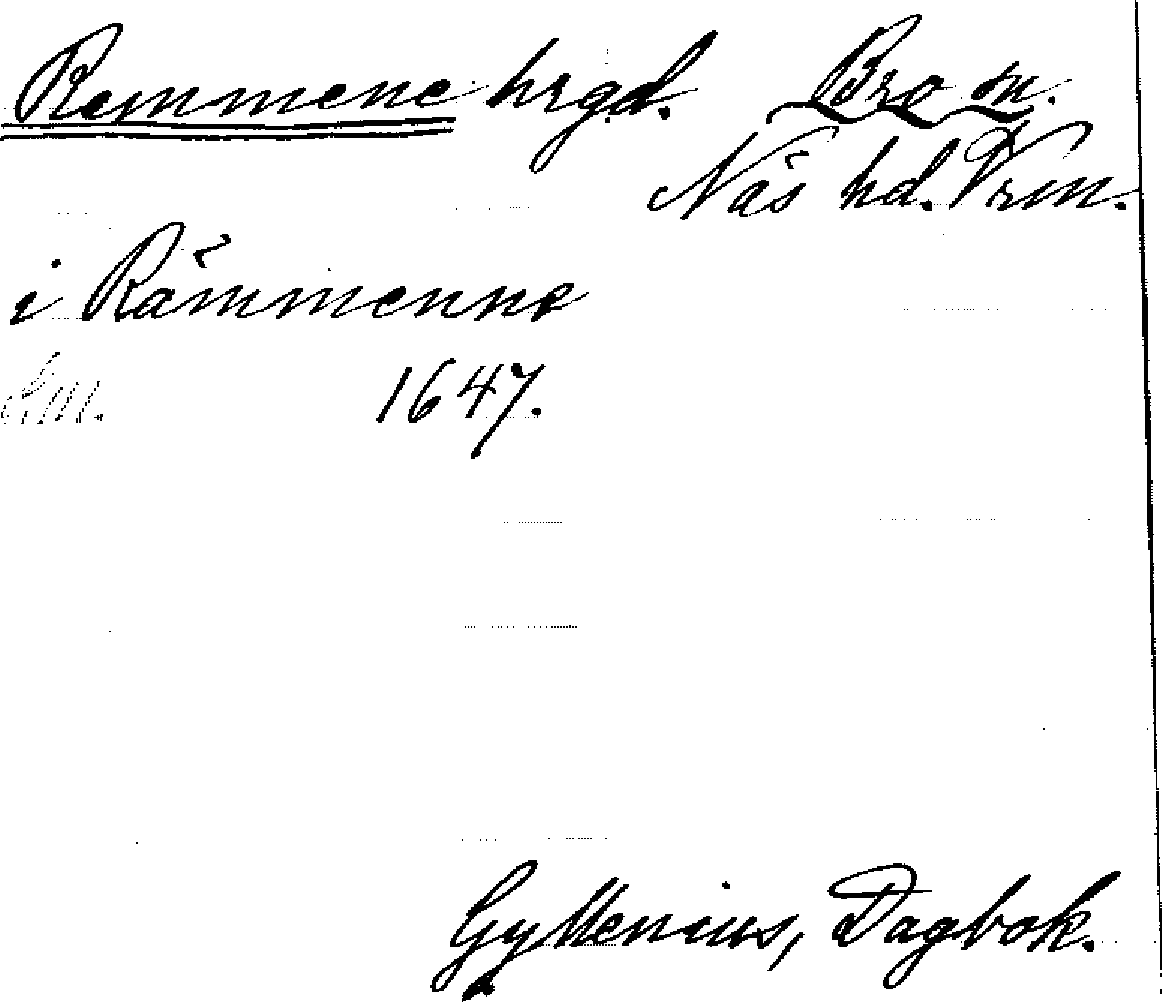 Remmene hrgd. Bro sn.
Näs hd. Vrm.
i Rämmenne
Lm. 1647.
Gyllenius, Dagbok.